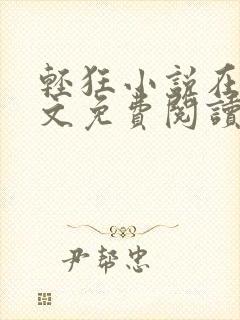 輕狂小說在
文免費閱讀
尹幫忠